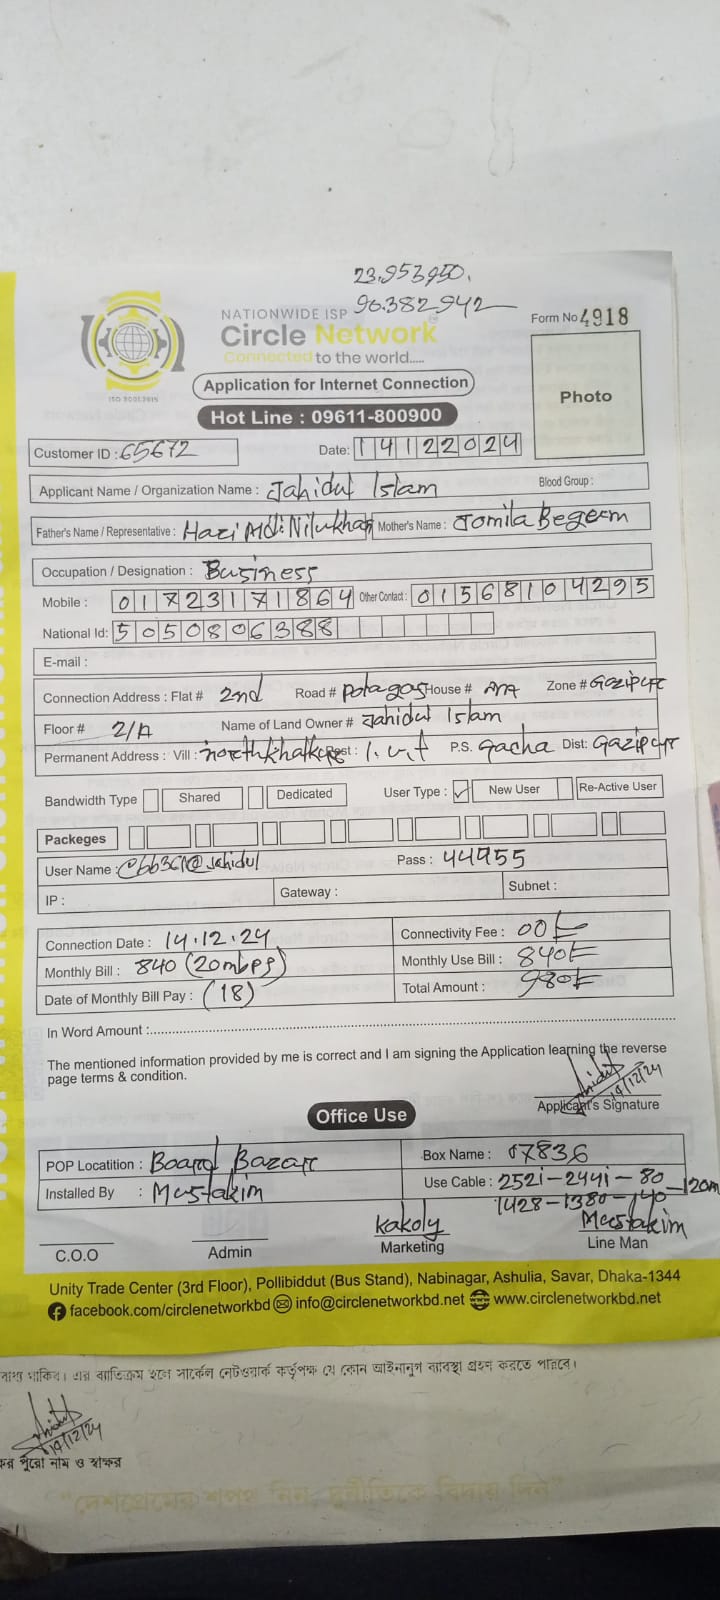 23.953950,
90.382942
NATIONWIDE ISP
Circle Network
Connected to the world.....
ISO 9001:2015
Form No 4918
Application for Internet Connection
Photo
Hot Line : 09611-800900
Customer ID : 65672 Date: 14122024
Applicant Name / Organization Name : Jahidul Islam Blood Group :
Father's Name / Representative : Hazi Md: Nilukhan Mother's Name : Jomila Begem
Occupation / Designation : Business
Mobile : 01723171864 Other Contact : 01568104295
National Id: 5050806388
E-mail :
Connection Address : Flat # 2nd Road # Potagas House # Zone # Gazipur
Floor # 2/A Name of Land Owner # Jahidul Islam
Permanent Address : Vill : Post : I.U.T P.S. Gacha Dist: Gazipur
Bandwidth Type Shared Dedicated User Type : ✓ New User Re-Active User
Packeges
User Name : Pass : 44955
IP : Gateway : Subnet :
Connection Date : 14.12.24 Connectivity Fee : 00
Monthly Bill : 840 (20mbps) Monthly Use Bill : 840
Date of Monthly Bill Pay : (18) Total Amount :
In Word Amount :
The mentioned information provided by me is correct and I am signing the Application learning the reverse
page terms & condition.
14/12/24
Applicant's Signature
Office Use
POP Locatition : Board Bazar Box Name : 07836
Installed By : Mustakim Use Cable : 2521-2441-80 120m
1428-1380-140
kakoly Mustakim
C.O.O Admin Marketing Line Man
Unity Trade Center (3rd Floor), Pollibiddut (Bus Stand), Nabinagar, Ashulia, Savar, Dhaka-1344
facebook.com/circlenetworkbd info@circlenetworkbd.net www.circlenetworkbd.net
থাকিব। এর ব্যতিক্রম হলে সার্কেল নেটওয়ার্ক কর্তৃপক্ষ যে কোন আইনানুগ ব্যবস্থা গ্রহণ করতে পারবে।
14/12/24
পুরো নাম ও স্বাক্ষর
“দেশপ্রেমের শপথ নিন, দুর্নীতিকে বিদায় দিন”